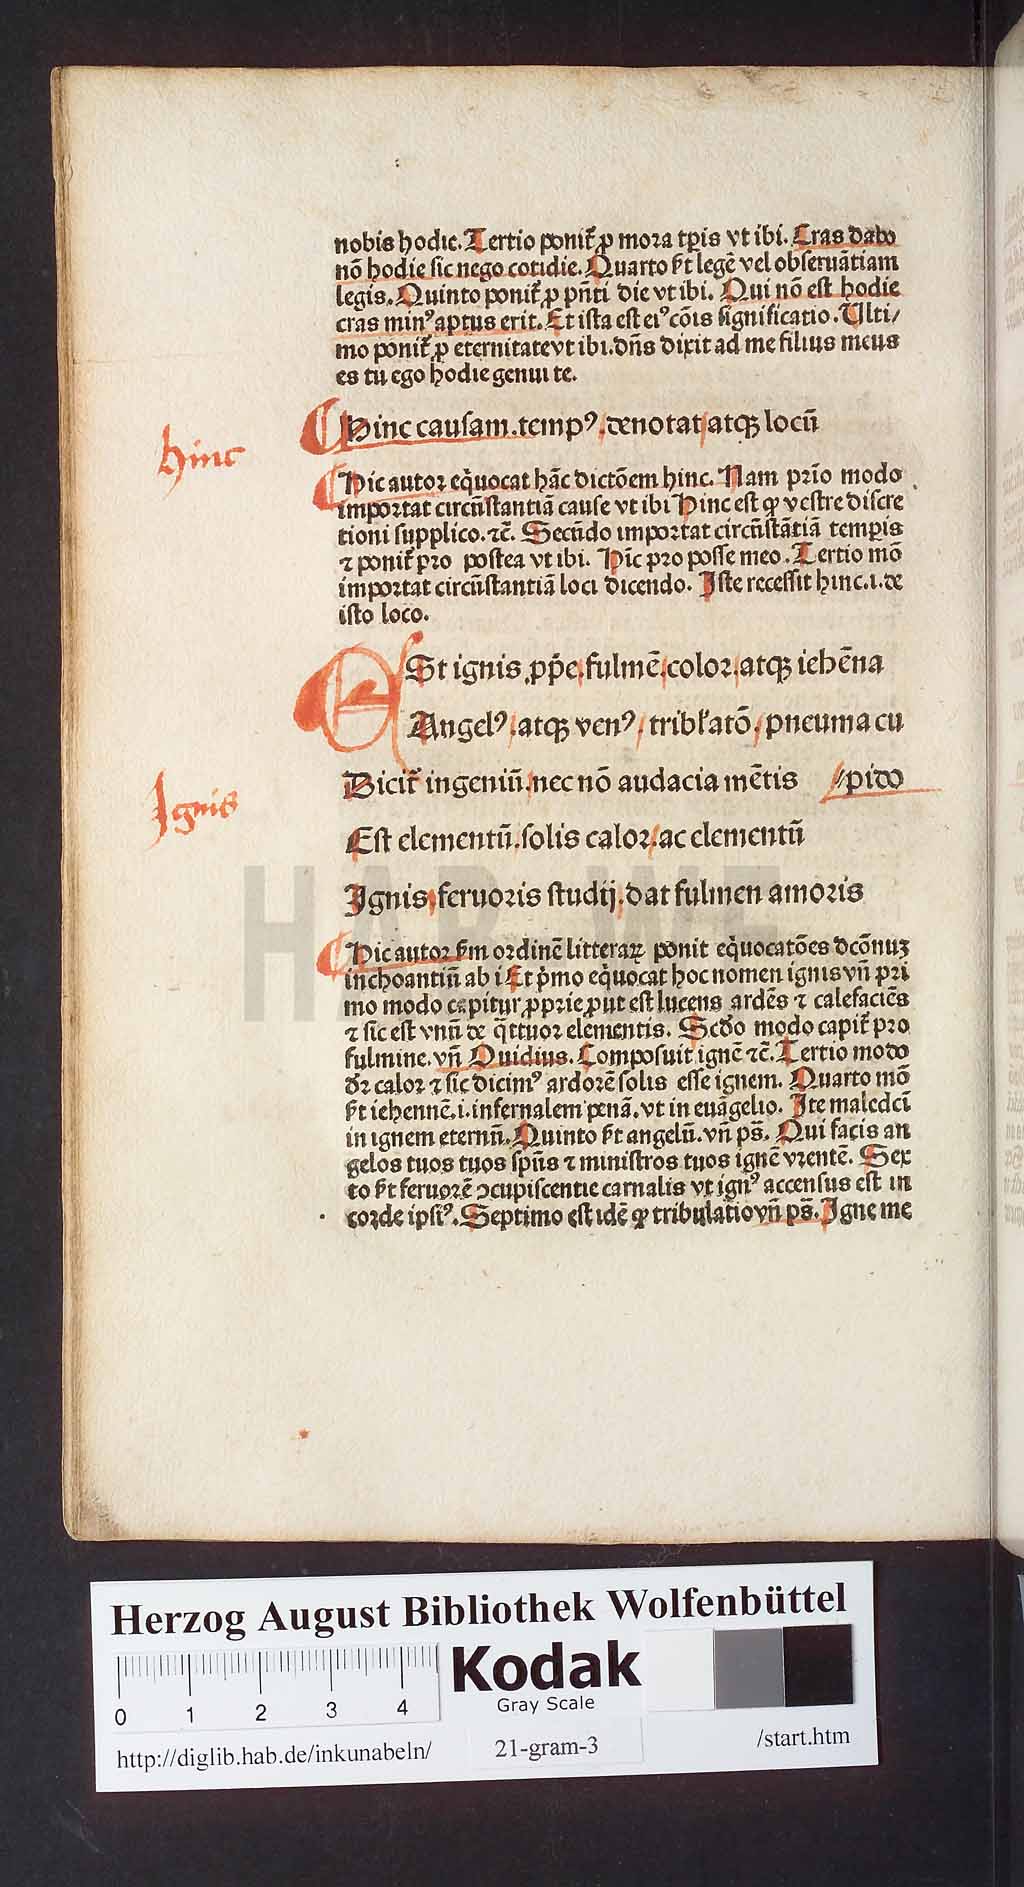 nobis hodie. Tertio ponit᷑ ꝑ mora tꝑis vt ibi. Cras dabo
nō hodie sic nego cotidie. Quarto ſꝫt legē vel obseruātiam
legis. Quinto ponit᷑ ꝓ pn̄ti die vt ibi. Qui nō est hodie
cras minꝰ aptus erit. Et ista est eiꝰ cōis significatio. Ulti/
mo ponit᷑ ꝓ eternitate vt ibi. dn̄s dixit ad me filius meus
es tu ego hodie genui te.
Hinc causam. tempꝰ. denotat atqꝫ locū
hinc
Hic autor eq̇uocat hāc dictōem hinc. Nam prīo modo
importat circūstantiā cause vt ibi Hinc est ꝙ vestre discre
tioni supplico. ⁊c̄. Secūdo importat circūstātiā temꝑis
⁊ ponit᷑ pro postea vt ibi. Hīc pro posse meo. Tertio mō
importat circūstantiā loci dicendo. Iste recessit hinc .i. de
isto loco.
ESt ignis ꝓp̄e fulmē color atqꝫ iehēna
Angelꝰ. atqꝫ venꝰ tribl'atō. pneuma cu
Dicit᷑ ingeniū. nec nō audacia mētis pido
Ignis
Est elementū. solis calor. ac elementū
Ignis feruoris studij. dat fulmen amoris
Hic autor ẜm ordinē litterarꝝ ponit eq̇uocatōes dcōnuꝫ
inchoantiū ab i Et p̄mo eq̇uocat hoc nomen ignis vn̄ pri
mo modo capitur ꝓprie ꝓut est lucens ardēs ⁊ calefaciēs
⁊ sic est vnū de q̄ttuor elementis. Scd̄o modo capit᷑ pro
fulmine. vn̄ Ouidius. Composuit ignē ⁊c̄. Tertio modo
dr̄ calor ⁊ sic dicimꝰ ardorē solis esse ignem. Quarto mō
ſꝫt iehennē .i. infernalem penā. vt in euāgelio. Ite maledci
in ignem eternū. Quinto ſꝫt angelū. vn̄ ps̄. Qui facis an
gelos tuos tuos sp̄us ⁊ ministros tuos ignē vrentē. Sex
to ſꝫt feruorē ↄcupiscentie carnalis vt ignꝰ accensus est in
corde ipsiꝰ. Septimo est idē ꝙ tribulatio vn̄ ps̄. Igne me
Herzog August Bibliothek Wolfenbüttel
Kodak
Gray Scale
0 1 2 3 4
http://diglib.hab.de/inkunabeln/
21-gram-3
/start.htm
HAB WF